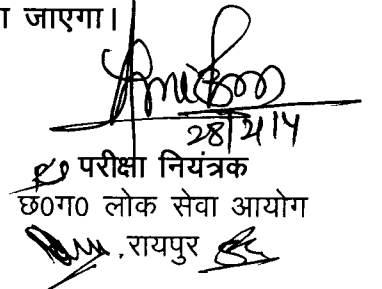 ा जाएगा।
28/2/14
परीक्षा नियंत्रक
छ0ग0 लोक सेवा आयोग
रायपुर